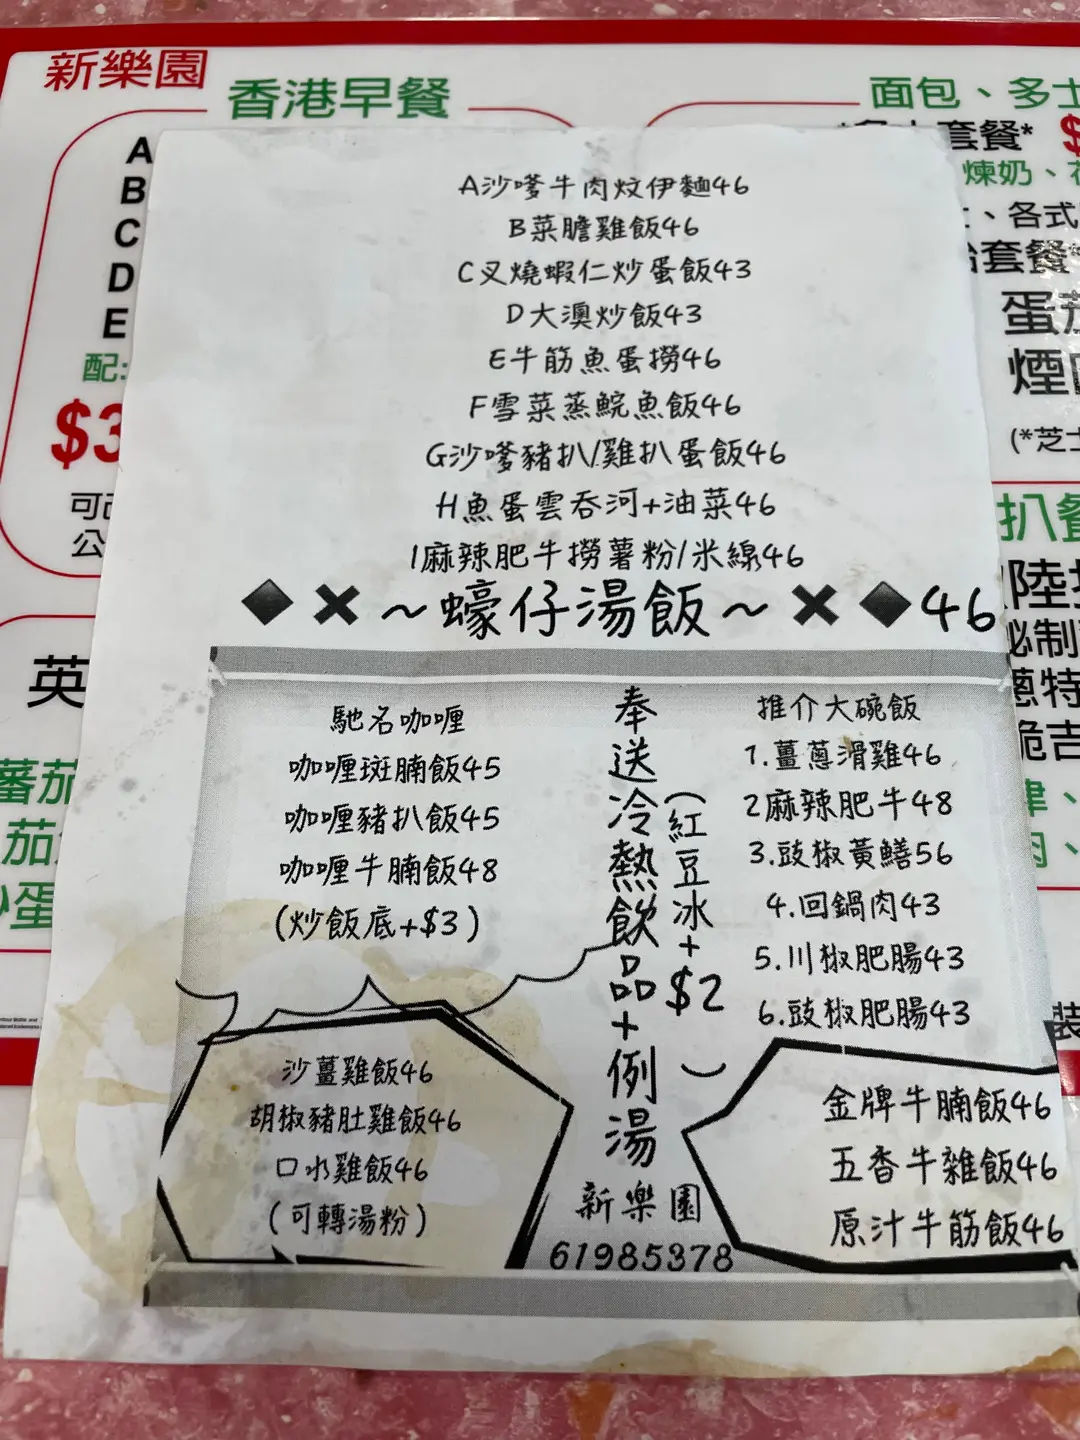 新樂園
香港早餐
A
B
C
D
E
配:
$3
可
公
英
蕃茄
茄
蛋
面包、多士
套餐* $
煉奶、花
、各式
套餐*
蛋茄
煙
(*芝士
扒餐
陸
秘制
蔥特
脆吉
裝
A沙嗲牛肉炆伊麵46
B菜膽雞飯46
C叉燒蝦仁炒蛋飯43
D大澳炒飯43
E牛筋魚蛋撈46
F雪菜蒸鯇魚飯46
G沙嗲豬扒/雞扒蛋飯46
H魚蛋雲吞河+油菜46
I麻辣肥牛撈薯粉/米線46
~蠔仔湯飯~46
馳名咖喱
咖喱斑腩飯45
咖喱豬扒飯45
咖喱牛腩飯48
(炒飯底+$3)
奉送冷熱飲品+例湯
(紅豆冰+$2)
推介大碗飯
1.薑蔥滑雞46
2麻辣肥牛48
3.豉椒黃鱔56
4.回鍋肉43
5.川椒肥腸43
6.豉椒肥腸43
沙薑雞飯46
胡椒豬肚雞飯46
口水雞飯46
(可轉湯粉)
新樂園
61985378
金牌牛腩飯46
五香牛雜飯46
原汁牛筋飯46